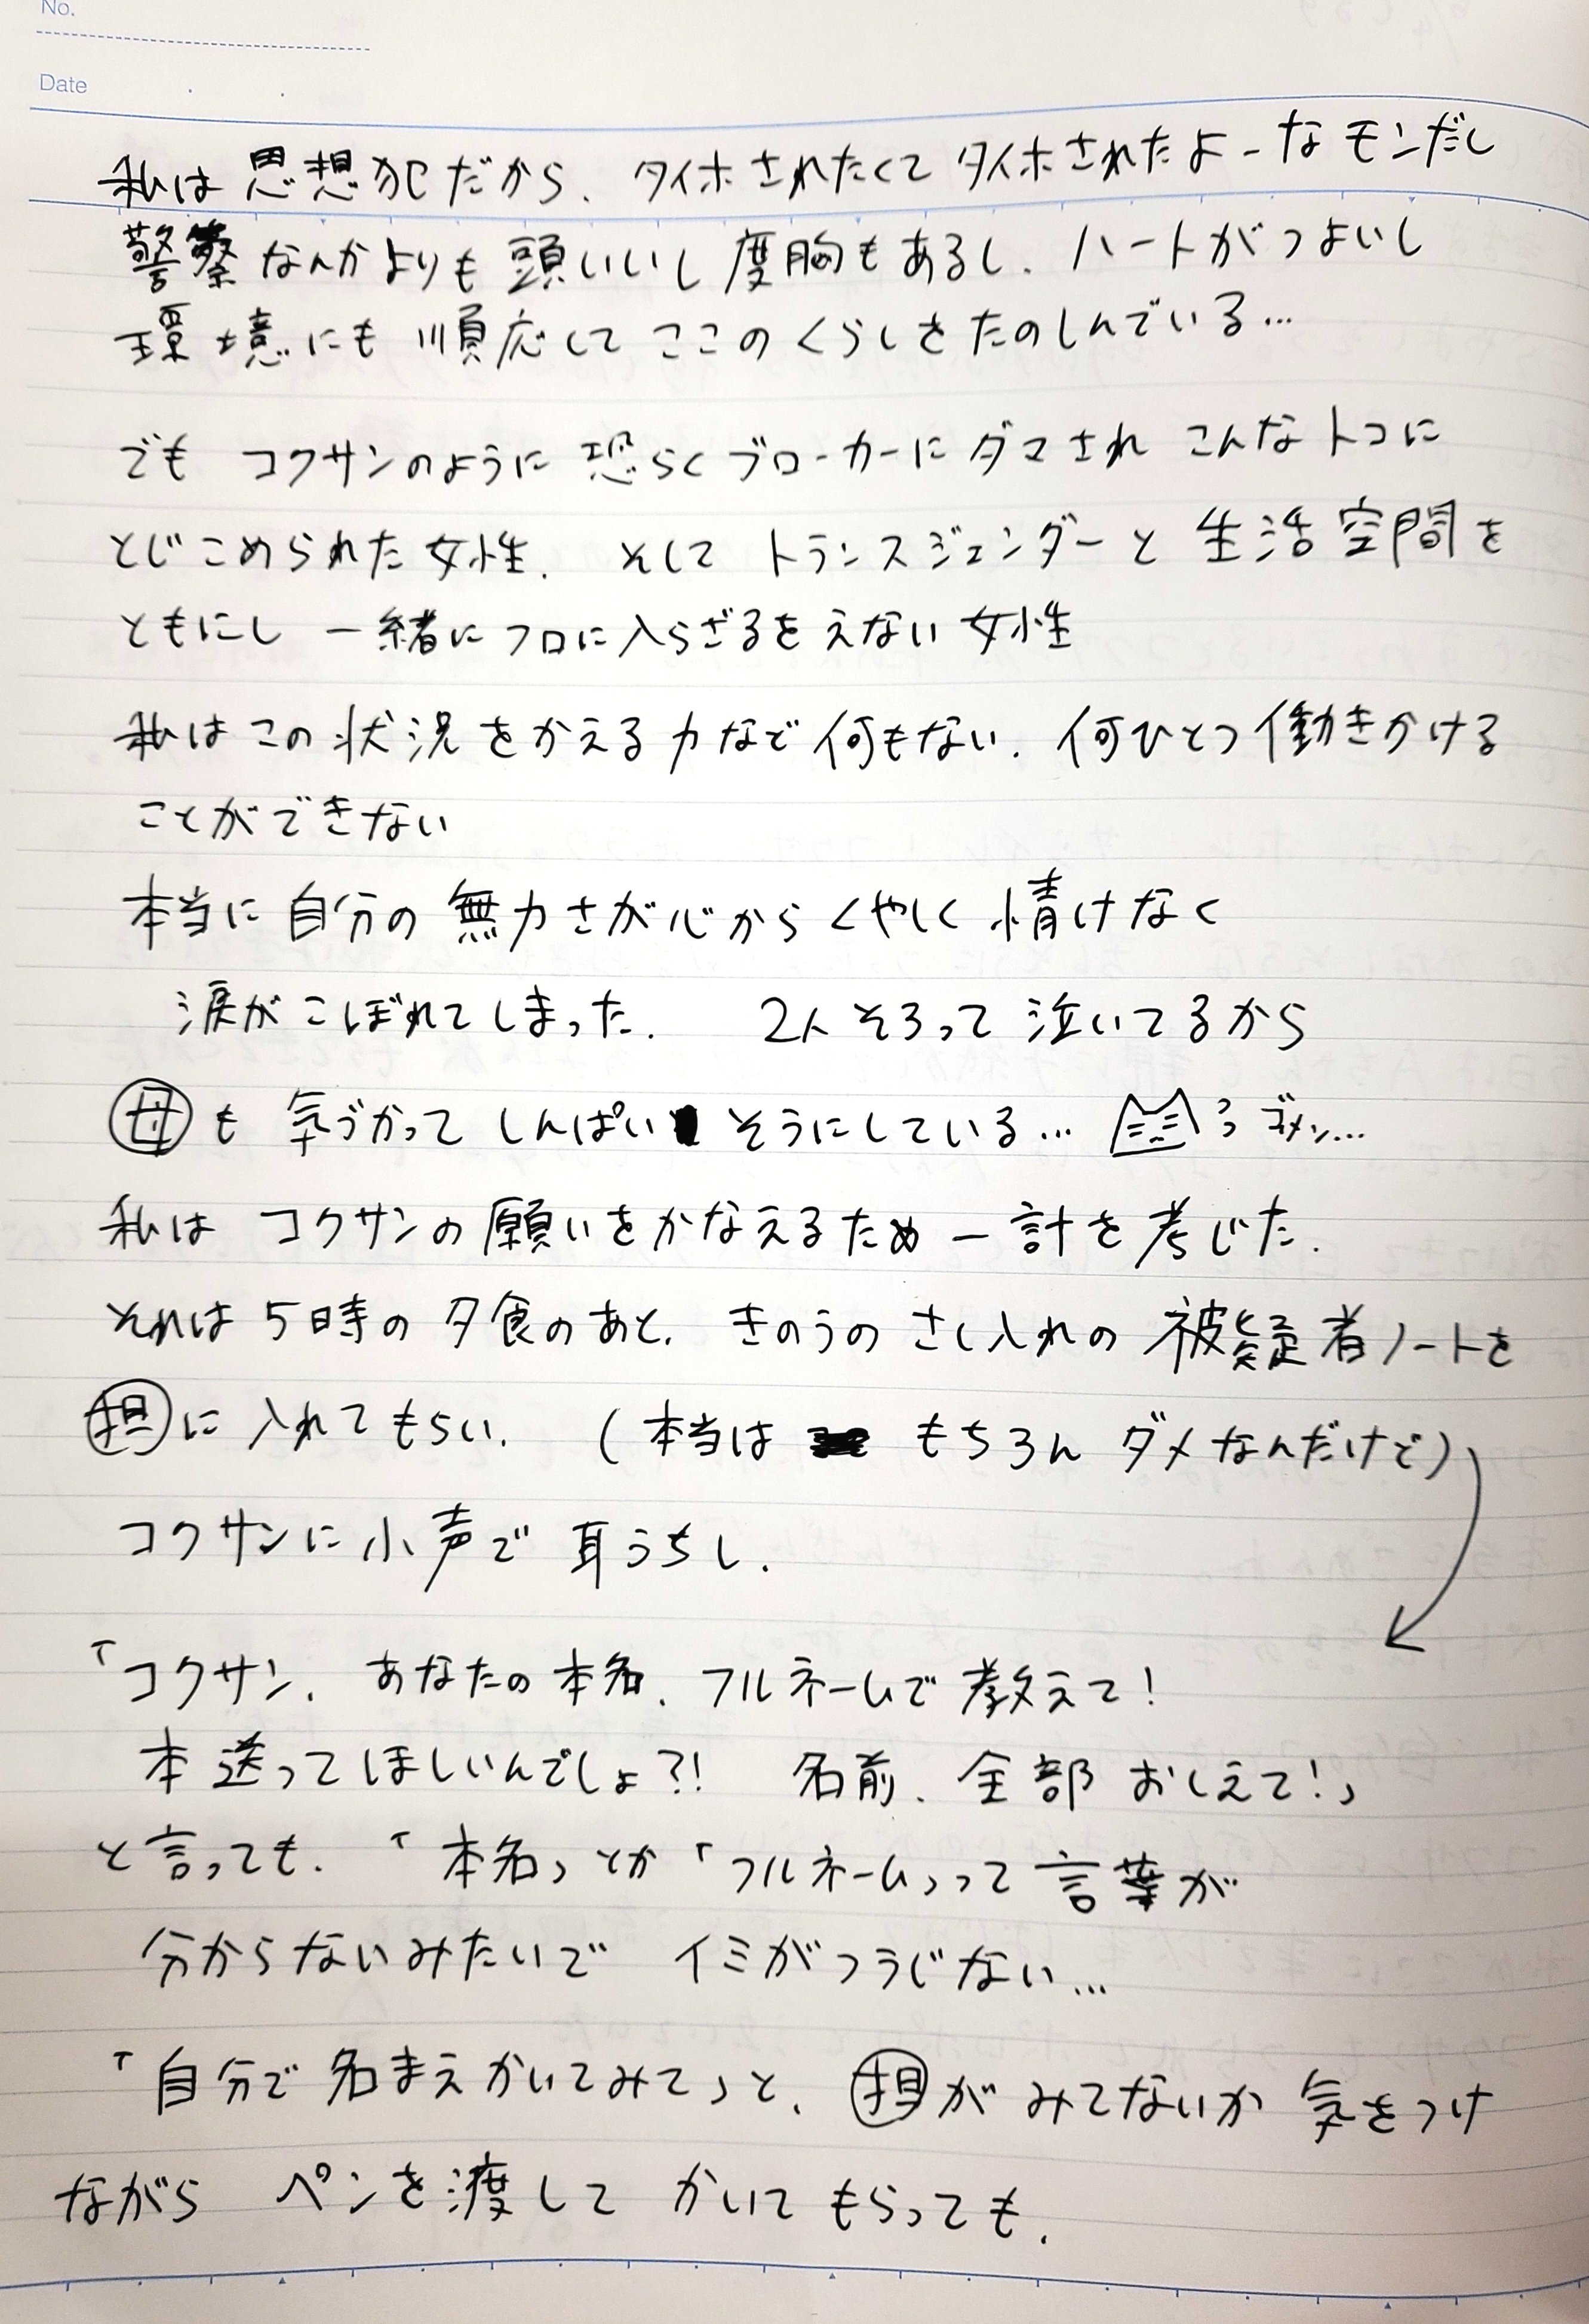 No.
Date
私は思想犯だから、タイホされたくてタイホされたよーなモンだし
警察なんかよりも頭いいし度胸もあるし、ハートがつよいし
環境にも順応してここのくらしをたのしんでいる…
でもコクサンのように恐らくブローカーにダマされこんなトコに
とじこめられた女性、そしてトランスジェンダーと生活空間を
ともにし一緒にフロに入らざるをえない女性
私はこの状況をかえる力など何もない、何ひとつ働きかける
ことができない
本当に自分の無力さが心からくやしく情けなく
涙がこぼれてしまった、2人そろって泣いてるから
母も気づかってしんぱいそうにしている…ゴメン…
私はコクサンの願いをかなえるため一計を考じた、
それは5時の夕食のあと、きのうのさし入れの被疑者ノートを
担に入れてもらい、(本当はもちろんダメなんだけど)
コクサンに小声で耳うちし、
「コクサン、あなたの本名、フルネームで教えて!
本送ってほしいんでしょ?!名前、全部おしえて!」
と言っても、「本名」とか「フルネーム」って言葉が
分からないみたいでイミがつうじない…
「自分で名まえかいてみて」と、担がみてないか気をつけ
ながらペンを渡してかいてもらっても、